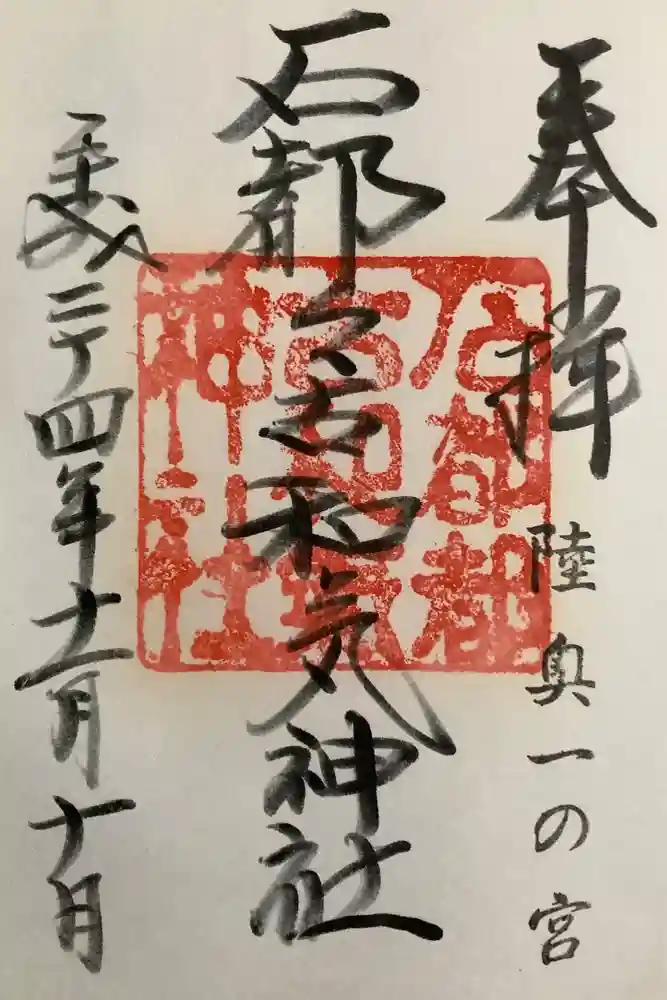 奉拝
陸奥一の宮
石都々古和気神社
平成二十四年十一月十日
石都都
古和氣
神社